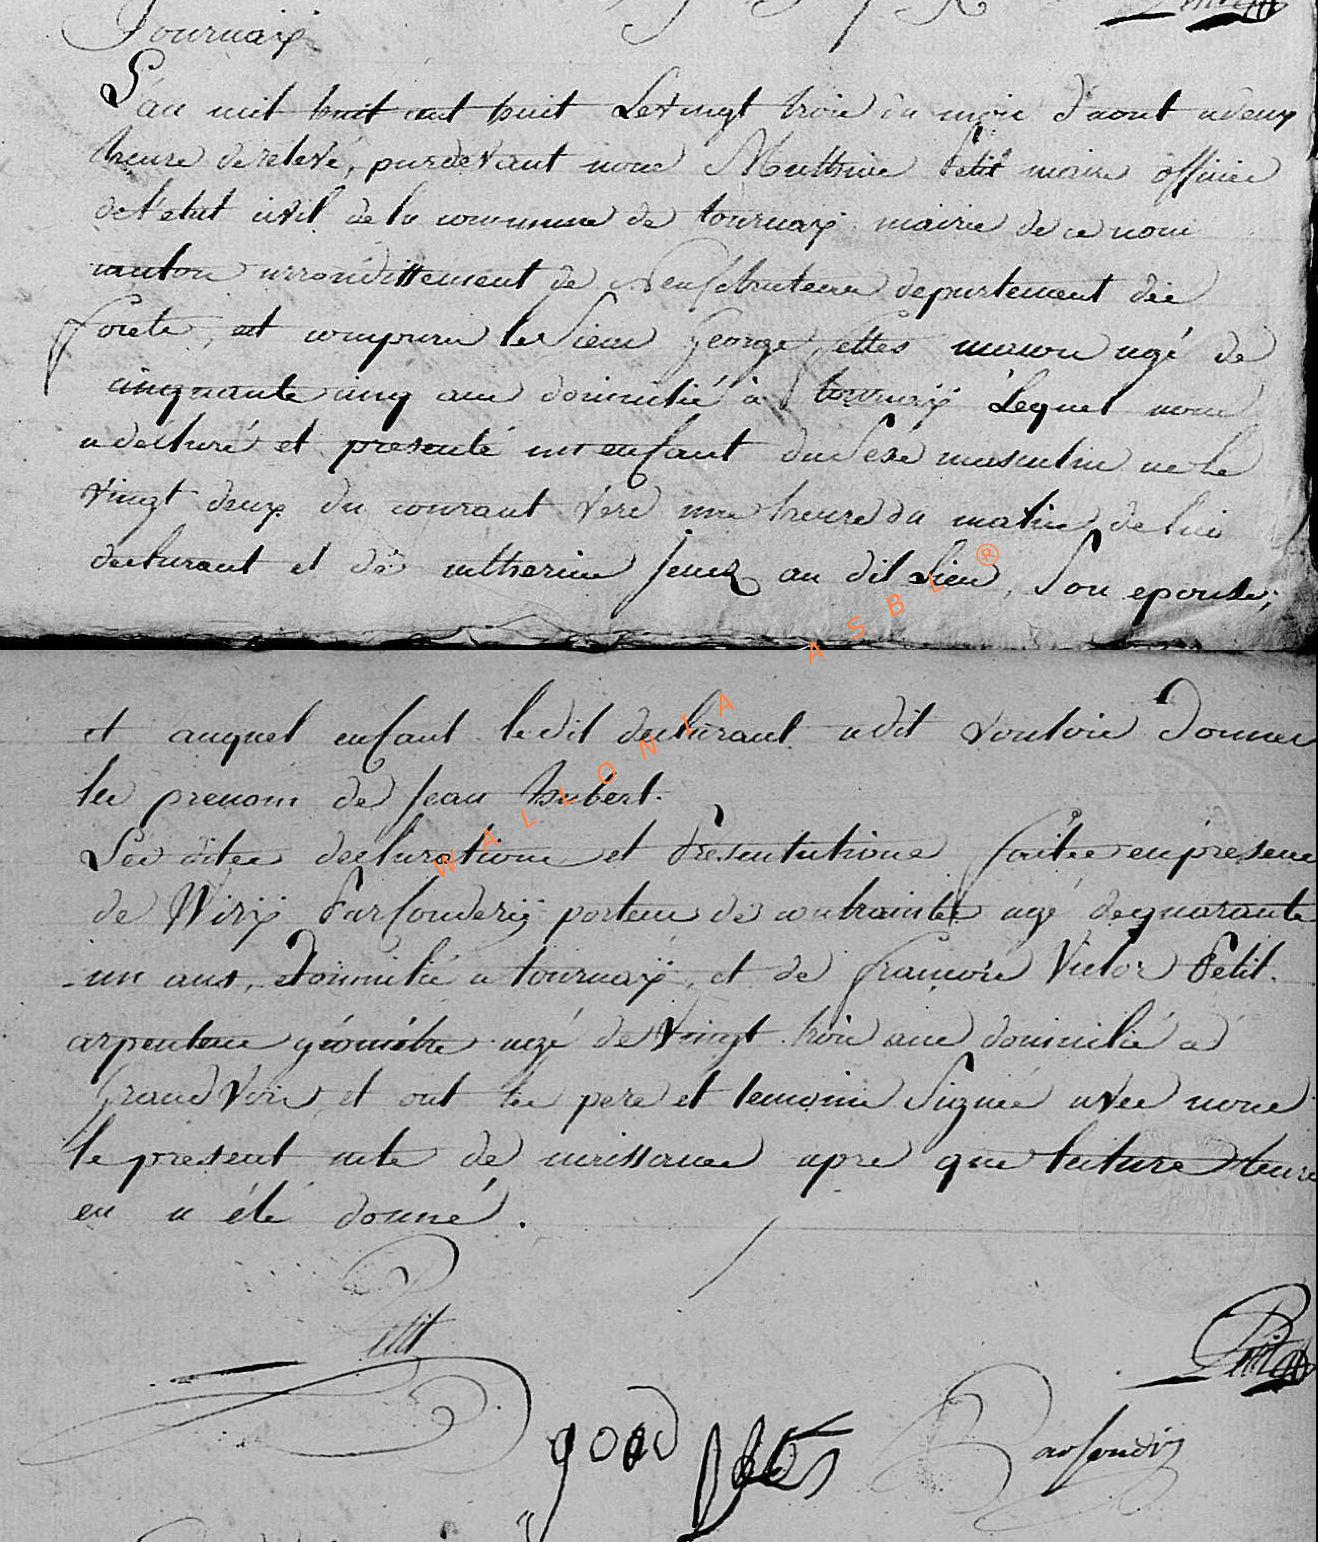 Tournaÿ
L'an mil huit cent huit Le vingt trois du mois d'aout a deux
heure de relevé, pardevant nous Matthieu Petit maire officier
de l'etat civil de la commune de tournaÿ mairie de ce nom
canton arrondissement de Neufchateau departement des
forets, est comparu le Sieur George settes macon agé de
cinquante cinq ans domicilié à tournaÿ Lequel nous
a declaré et presenté un enfant du Sexe masculin ne le
vingt deux du courant vers une heure du matin de lui
declarant et de catherine Jenez au dit Lieu, Son epouse;
et auquel enfant le dit declarant a dit vouloir donner
les prenom de Jean hubert.
Les dites declarations et Presentations faites en presence
de Wirÿ Parfonderÿ porteur des contraintes agé de quarante
un ans, domicilié a tournaÿ, et de francois Victor Petit
arpenteur géométre agé de vingt trois ans domicilié a
Grand Voir, et ont les pere et temoins Signés avec nous
le present acte de naissance apres que lecture leur
en a été donné.
Petit
Petit
WALLONIA ASBL ®